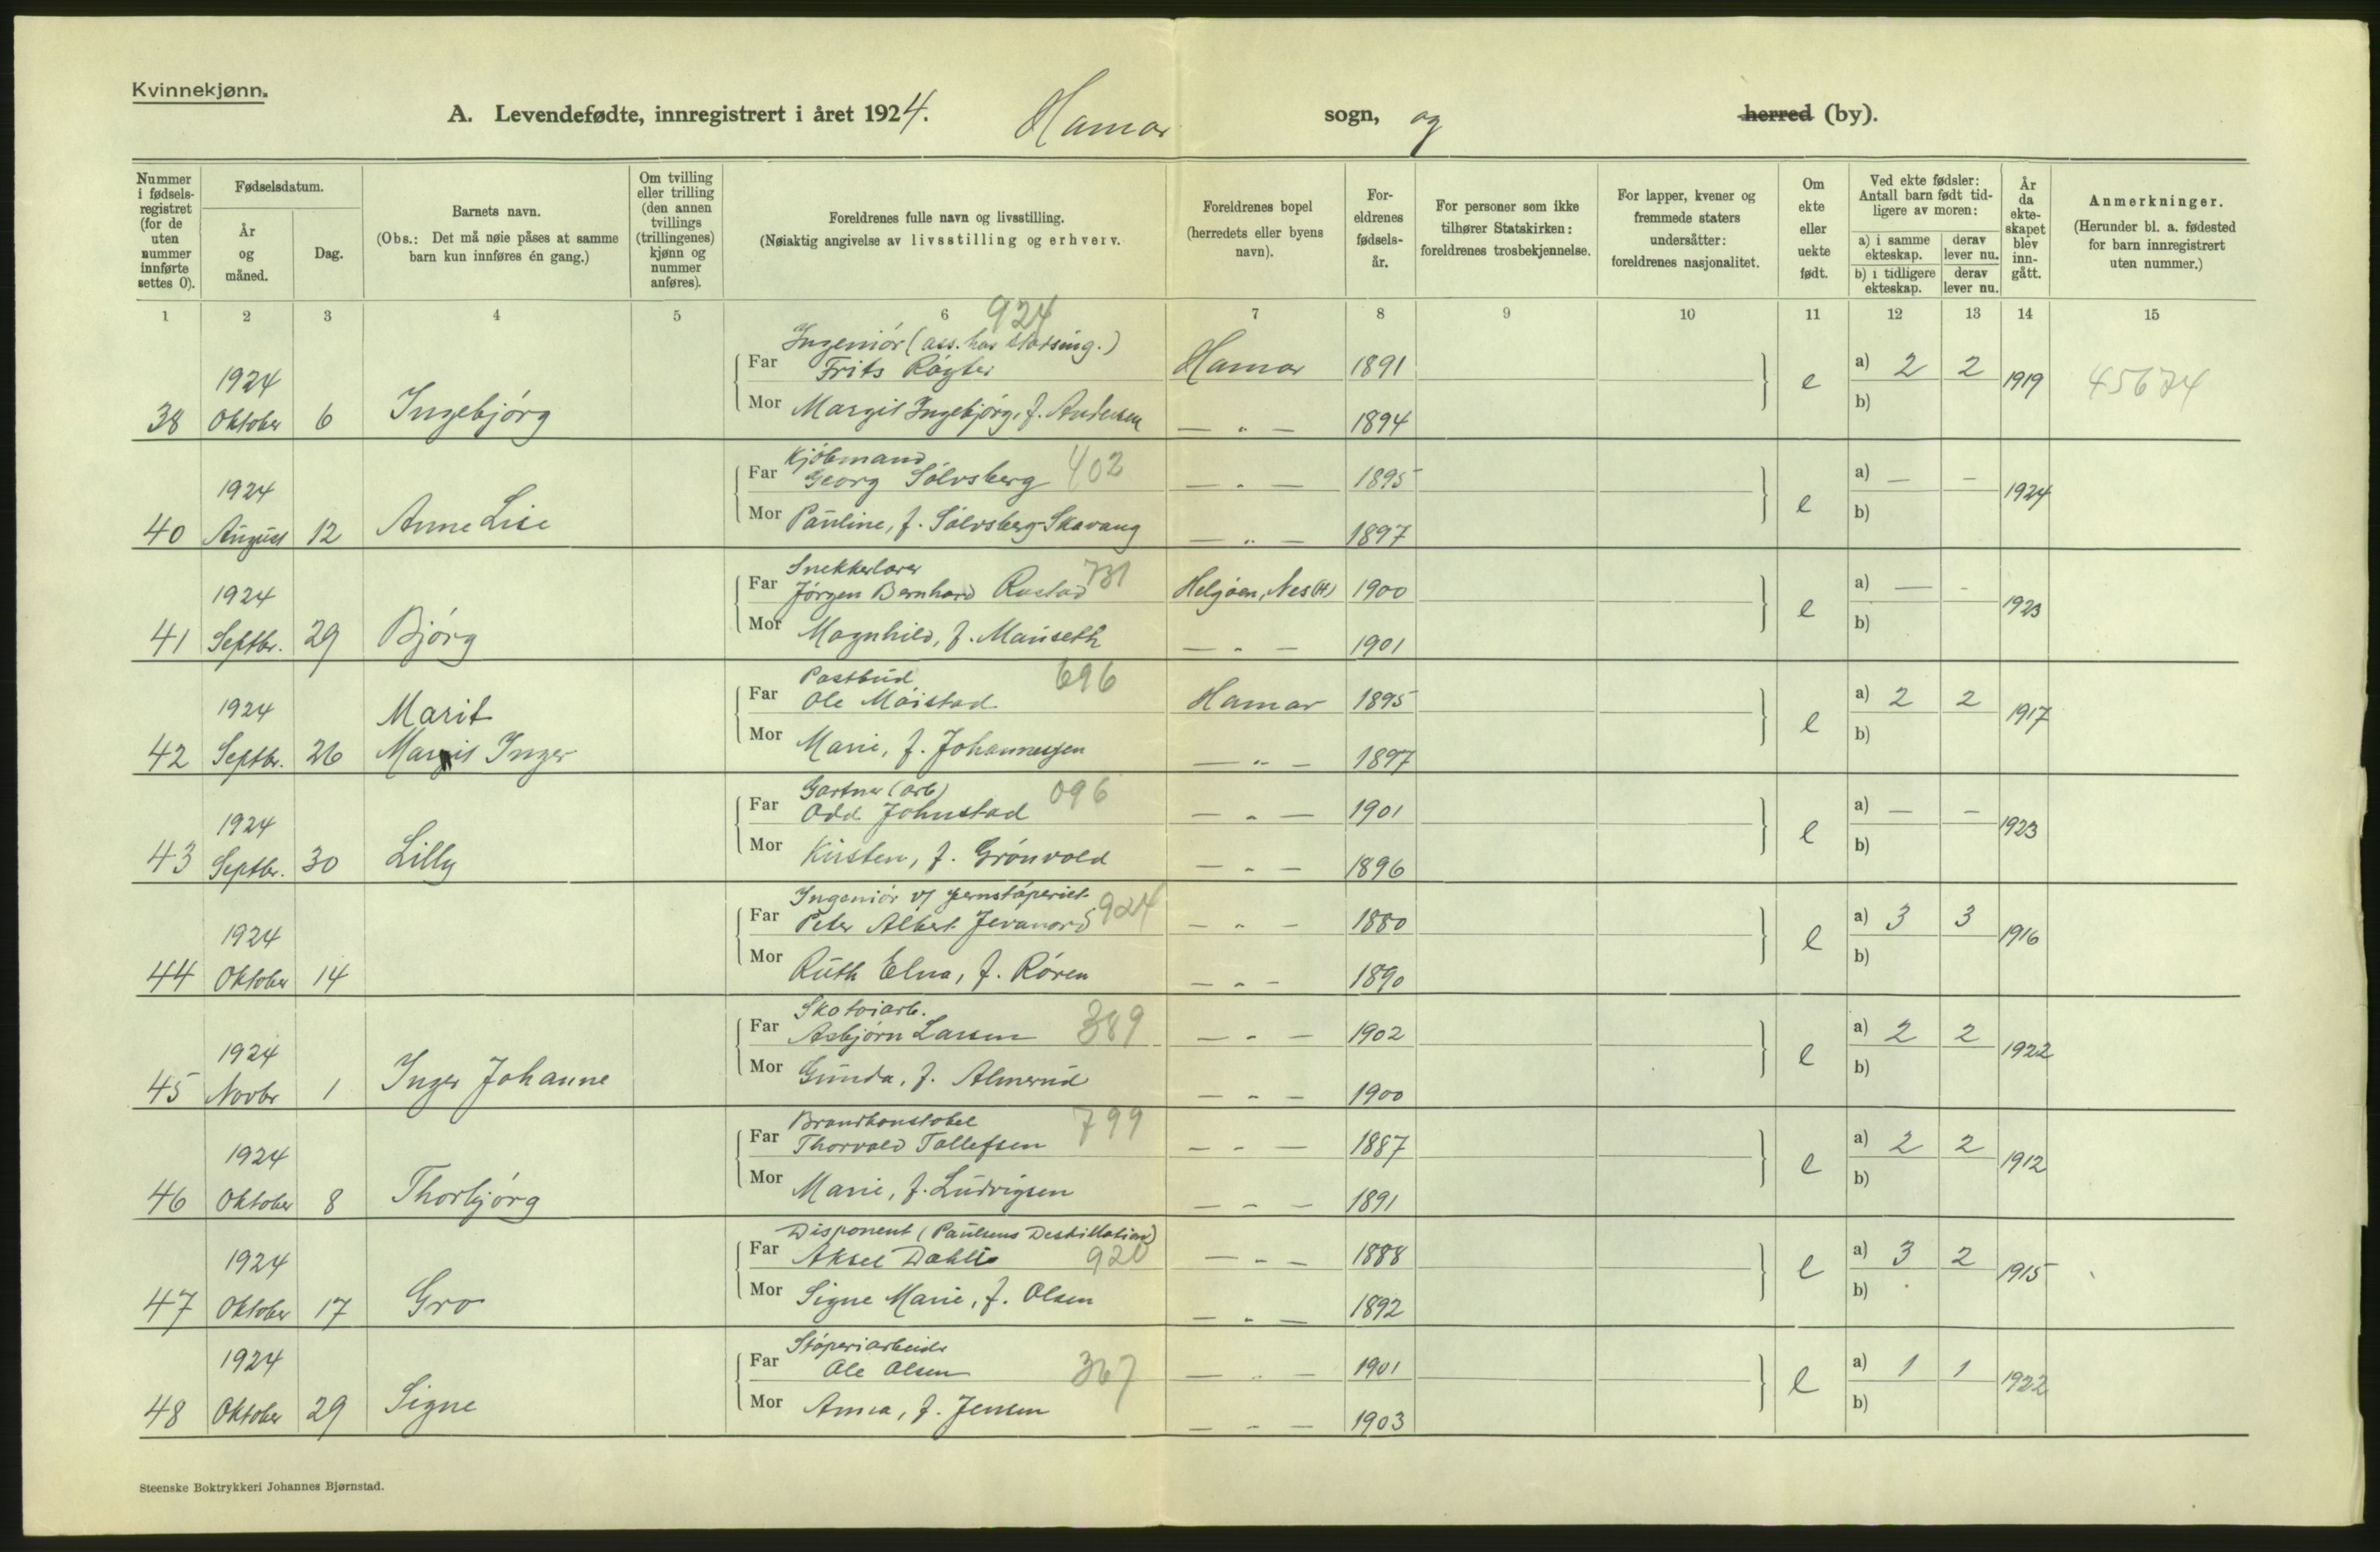 Kvinnekjønn.
A. Levendefødte, innregistrert i året 1924. Hamar sogn, og herred (by).
Nummer i fødsels-registret (for de uten nummer innførte settes 0).
Fødselsdatum.
År og måned.
Dag.
Barnets navn.
(Obs.: Det må nøie påses at samme barn kun innføres én gang.)
Om tvilling eller trilling (den annen tvillings (trillingenes) kjønn og nummer anføres).
Foreldrenes fulle navn og livsstilling.
(Nøiaktig angivelse av livsstilling og erhverv.
Foreldrenes bopel (herredets eller byens navn).
For-eldrenes fødsels-år.
For personer som ikke tilhører Statskirken: foreldrenes trosbekjennelse.
For lapper, kvener og fremmede staters undersåtter: foreldrenes nasjonalitet.
Om ekte eller uekte født.
Ved ekte fødsler: Antall barn født tid-ligere av moren:
a) i samme ekteskap. derav lever nu.
b) i tidligere ekteskap. derav lever nu.
År da ekte-skapet blev inn-gått.
Anmerkninger.
(Herunder bl. a. fødested for barn innregistrert uten nummer.)
1 2 3 4 5 6 7 8 9 10 11 12 13 14 15
924
Ingeniör (ass. hos stadsing.)
Far Frits Hamar 1891 a) 2 2
1924 e 1919 45674
38 Oktober 6 Ingebjörg Mor Margit Ingebjörg, f. Andersen — " — 1894 b)
Kjöbmand 402
Far Georg Sölvsberg — " — 1895 a) — –
1924 e 1924
40 August 12 Anne Lise Mor Pauline, f. Sölvsberg Skavang — " — 1897 b)
Snekkerlærer 731
Far Jörgen Bernhard Rustad Helgöen, Nes (H) 1900 a) — -
1924 e 1923
41 Septbr. 29 Björg Mor Magnhild, f. Mauseth — " — 1901 b)
Postbud 696
Far Ole Möistad Hamar 1895 a) 2 2
1924 Marit e 1917
42 Septbr. 26 Margit Inger Mor Marie, f. Johannessen — " — 1897 b)
Gartner (arb) 096
Far Odd Johnstad — " — 1901 a) — –
1924 e 1923
43 Septbr. 30 Lilly Mor Kirsten, f. Grönvold — " — 1896 b)
Ingeniör v/ Jernstöperiet 924
Far Peter Albert Jevanord — " — 1880 a) 3 3
1924 e 1916
44 Oktober 14 Mor Ruth Elna, f. Rören — " — 1890 b)
Skotöiarb. 389
Far Asbjörn Larsen — " — 1902 a) 2 2
1924 e 1922
45 Novbr 1 Inger Johanne Mor Gunda, f. Almerud — " — 1900 b)
Brandkonstabel 799
Far Thorvald Tollefsen — " — 1887 a) 2 2
1924 e 1912
46 Oktober 8 Thorbjörg Mor Marie, f. Ludvigsen — " — 1891 b)
Disponent (Paulsens Destillation)
Far Aksel Dahle 920 — " — 1888 a) 3 2
1924 e 1915
47 Oktober 17 Gro Mor Signe Marie, f. Olsen — " — 1892 b)
Stöperiarbeider
Far Ole Olsen 367 — " — 1901 a) 1 1
1924 e 1922
48 Oktober 29 Signe Mor Anna, f. Jensen — " — 1903 b)
Steenske Boktrykkeri Johannes Bjørnstad.